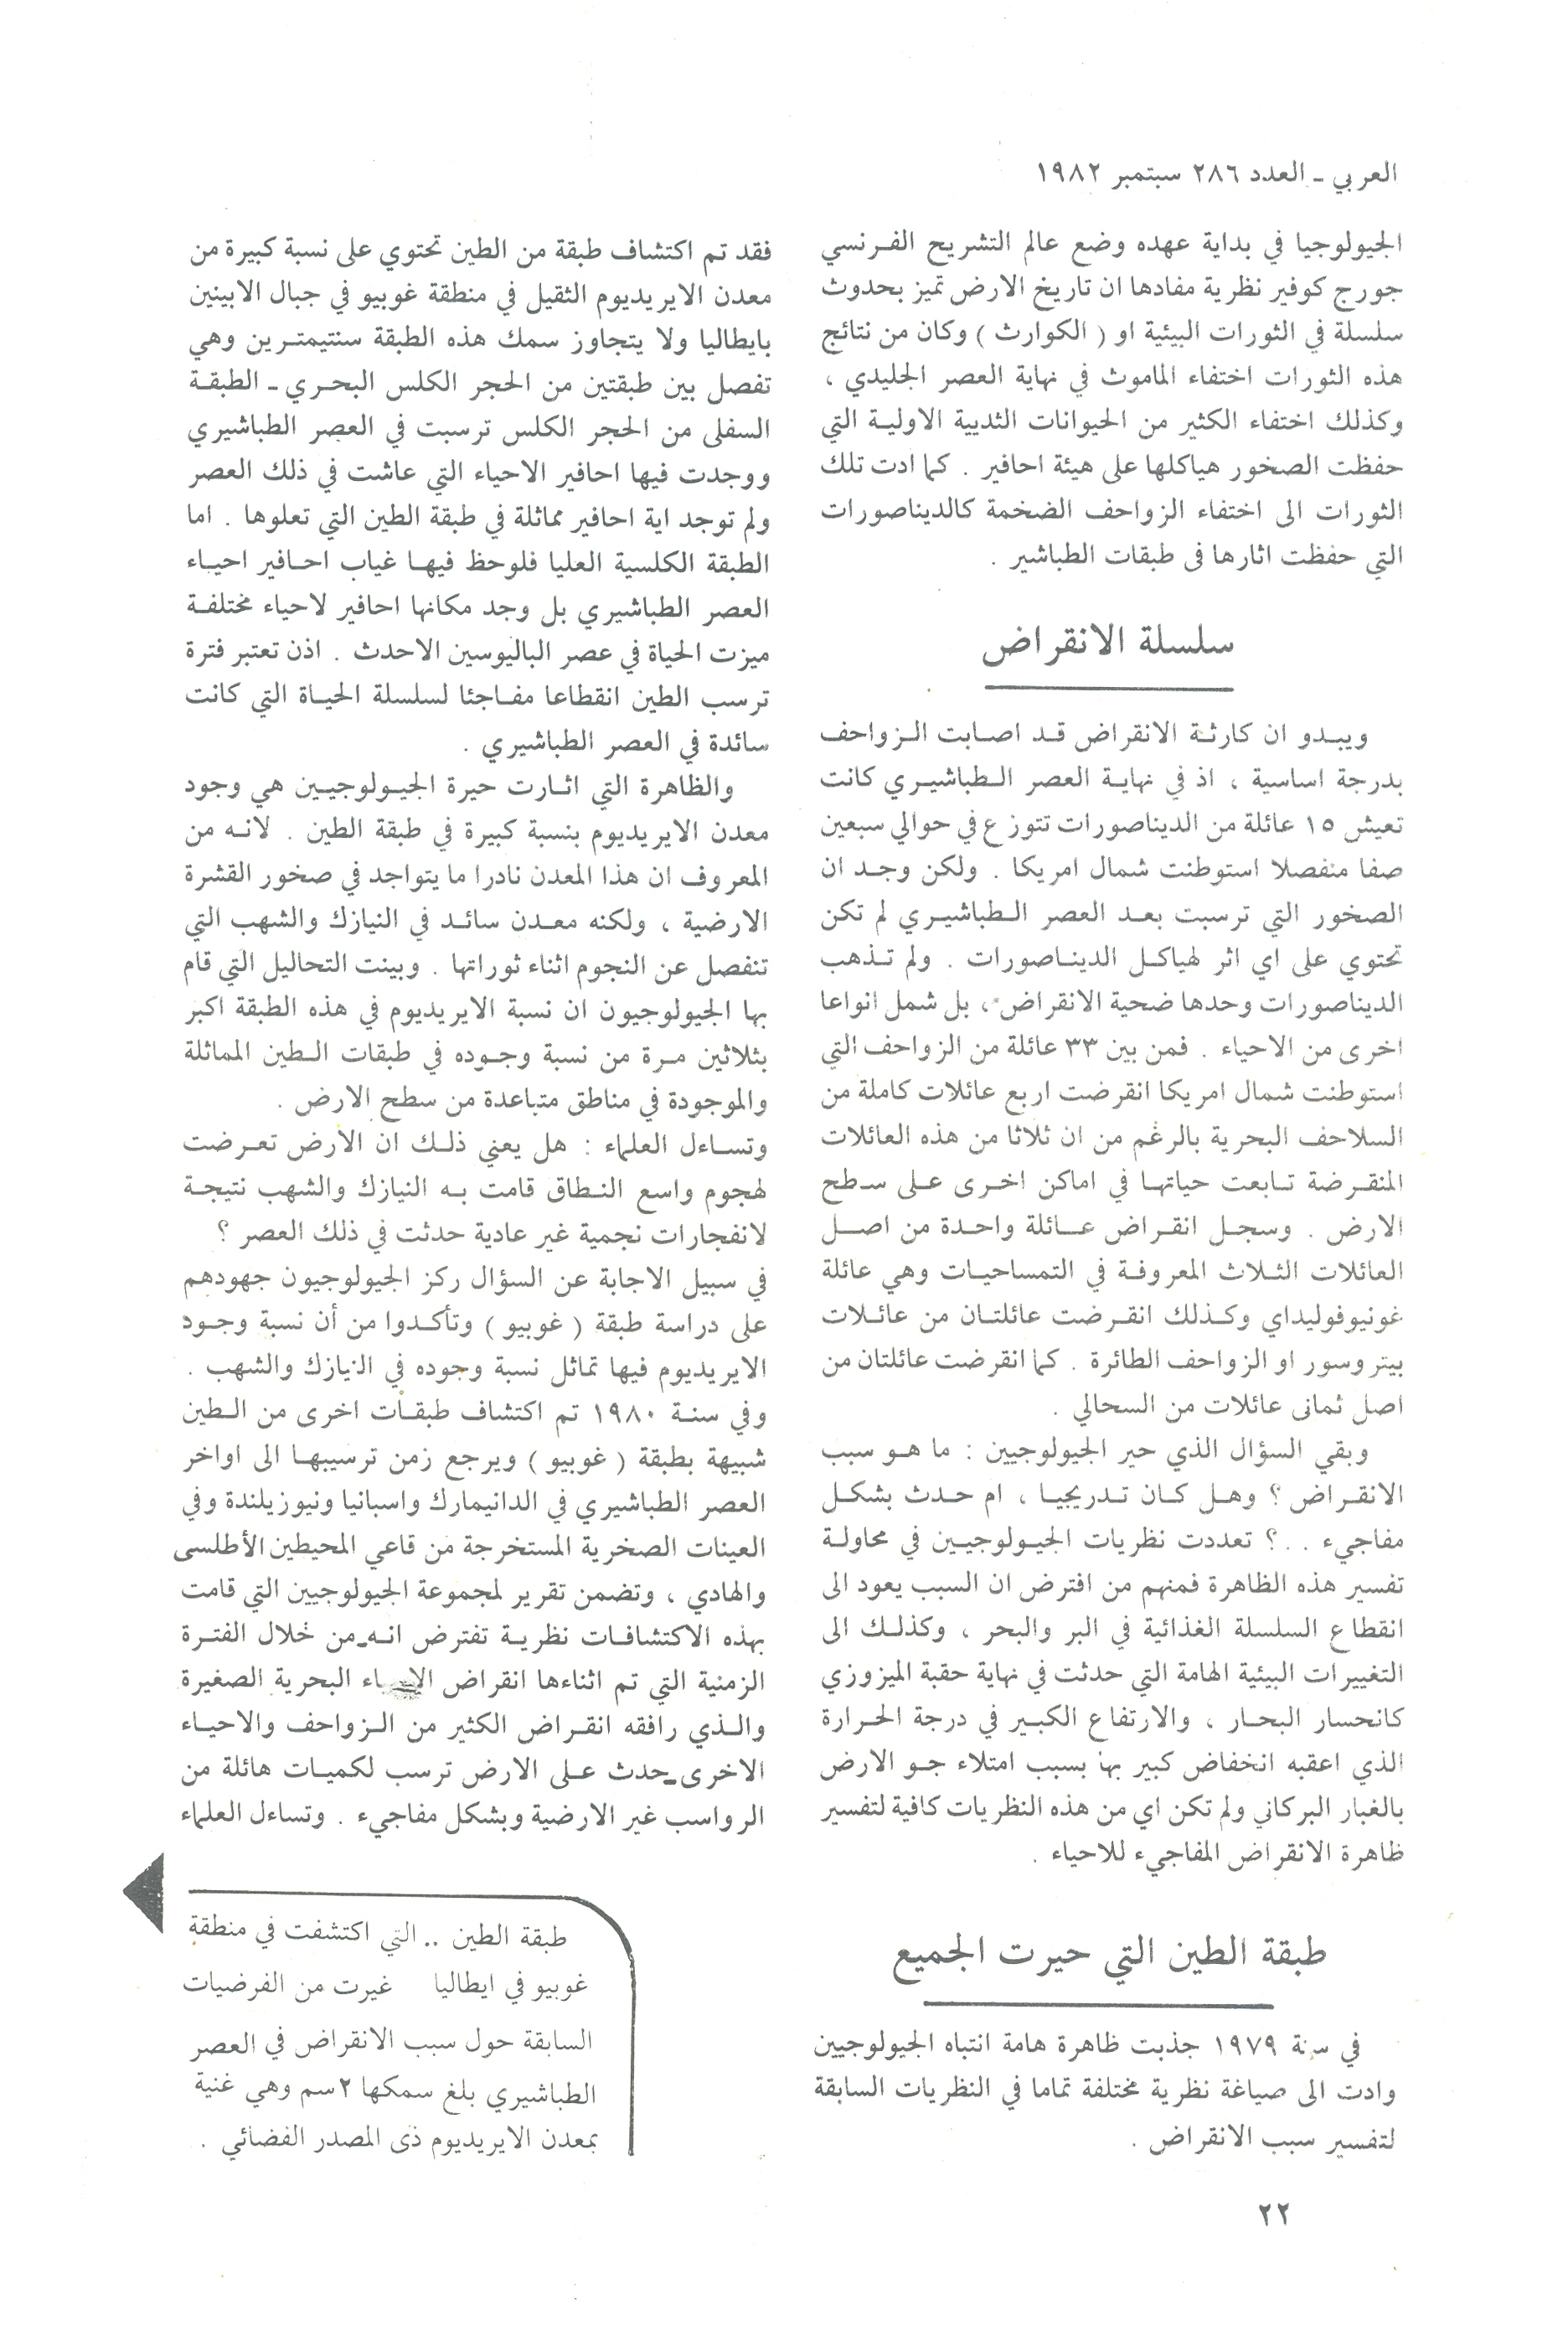 العربي ـ العدد ٢٨٦ سبتمبر ١٩٨٢
الجيولوجيا في بداية عهده وضع عالم التشريح الفرنسي
جورج كوفير نظرية مفادها ان تاريخ الارض تميز بحدوث
سلسلة في الثورات البيئية او ( الكوارث ) وكان من نتائج
هذه الثورات اختفاء الماموث في نهاية العصر الجليدي ،
وكذلك اختفاء الكثير من الحيوانات الثديية الاولية التي
حفظت الصخور هياكلها على هيئة احافير . كما ادت تلك
الثورات الى اختفاء الزواحف الضخمة كالديناصورات
التي حفظت اثارها فى طبقات الطباشير .
سلسلة الانقراض
ويبدو ان كارثة الانقراض قد اصابت الزواحف
بدرجة اساسية ، اذ في نهاية العصر الطباشيري كانت
تعيش ١٥ عائلة من الديناصورات تتوزع في حوالي سبعين
صفا منفصلا استوطنت شمال امريكا . ولكن وجد ان
الصخور التي ترسبت بعد العصر الطباشيري لم تكن
تحتوي على اي اثر لهياكل الديناصورات . ولم تذهب
الديناصورات وحدها ضحية الانقراض ، بل شمل انواعا
اخرى من الاحياء . فمن بين ٣٣ عائلة من الزواحف التي
استوطنت شمال امريكا انقرضت اربع عائلات كاملة من
السلاحف البحرية بالرغم من ان ثلاثا من هذه العائلات
المنقرضة تابعت حياتها في اماكن اخرى على سطح
الارض . وسجل انقراض عائلة واحدة من اصل
العائلات الثلاث المعروفة في التمساحيات وهي عائلة
غونيوفوليداي وكذلك انقرضت عائلتان من عائلات
بيتروسور او الزواحف الطائرة . كما انقرضت عائلتان من
اصل ثمانى عائلات من السحالي .
وبقي السؤال الذي حير الجيولوجيين : ما هو سبب
الانقراض ؟ وهل كان تدريجيا ، ام حدث بشكل
مفاجيء . . ؟ تعددت نظريات الجيولوجيين في محاولة
تفسير هذه الظاهرة فمنهم من افترض ان السبب يعود الى
انقطاع السلسلة الغذائية في البر والبحر ، وكذلك الى
التغييرات البيئية الهامة التي حدثت في نهاية حقبة الميزوزي
كانحسار البحار ، والارتفاع الكبير في درجة الحرارة
الذي اعقبه انخفاض كبير بها بسبب امتلاء جو الارض
بالغبار البركاني ولم تكن اي من هذه النظريات كافية لتفسير
ظاهرة الانقراض المفاجيء للاحياء .
طبقة الطين التي حيرت الجميع
في سنة ١٩٧٩ جذبت ظاهرة هامة انتباه الجيولوجيين
وادت الى صياغة نظرية مختلفة تماما في النظريات السابقة
لتفسير سبب الانقراض .
فقد تم اكتشاف طبقة من الطين تحتوي على نسبة كبيرة من
معدن الايريديوم الثقيل في منطقة غوبيو في جبال الابينين
بايطاليا ولا يتجاوز سمك هذه الطبقة سنتيمترين وهي
تفصل بين طبقتين من الحجر الكلس البحري ـ الطبقة
السفلى من الحجر الكلس ترسبت في العصر الطباشيري
ووجدت فيها احافير الاحياء التي عاشت في ذلك العصر
ولم توجد اية احافير مماثلة في طبقة الطين التي تعلوها . اما
الطبقة الكلسية العليا فلوحظ فيها غياب احافير احياء
العصر الطباشيري بل وجد مكانها احافير لاحياء مختلفة
ميزت الحياة في عصر الباليوسين الاحدث . اذن تعتبر فترة
ترسب الطين انقطاعا مفاجئا لسلسلة الحياة التي كانت
سائدة في العصر الطباشيري .
والظاهرة التي اثارت حيرة الجيولوجيين هي وجود
معدن الايريديوم بنسبة كبيرة في طبقة الطين . لانه من
المعروف ان هذا المعدن نادرا ما يتواجد في صخور القشرة
الارضية ، ولكنه معدن سائد في النيازك والشهب التي
تنفصل عن النجوم اثناء ثوراتها . وبينت التحاليل التي قام
بها الجيولوجيون ان نسبة الايريديوم في هذه الطبقة اكبر
بثلاثين مرة من نسبة وجوده في طبقات الطين المماثلة
والموجودة في مناطق متباعدة من سطح الارض .
وتساءل العلماء : هل يعني ذلك ان الأرض تعرضت
لهجوم واسع النطاق قامت به النيازك والشهب نتيجة
لانفجارات نجمية غير عادية حدثت في ذلك العصر ؟
في سبيل الاجابة عن السؤال ركز الجيولوجيون جهودهم
على دراسة طبقة ( غوبيو ) وتأكدوا من أن نسبة وجود
الايريديوم فيها تماثل نسبة وجوده في النيازك والشهب .
وفي سنة ١٩٨٠ تم اكتشاف طبقات اخرى من الطين
شبيهة بطبقة ( غوبيو ) ويرجع زمن ترسيبها الى اواخر
العصر الطباشيري في الدانيمارك واسبانيا ونيوزيلندة وفي
العينات الصخرية المستخرجة من قاعي المحيطين الأطلسى
والهادي ، وتضمن تقرير لمجموعة الجيولوجيين التي قامت
بهذه الاكتشافات نظرية تفترض انه ـ من خلال الفترة
الزمنية التي تم اثناءها انقراض البحرية الصغيرة
والذي رافقه انقراض الكثير من الزواحف والاحياء
الاخرى ـ حدث على الارض ترسب لكميات هائلة من
الرواسب غير الارضية وبشكل مفاجيء . وتساءل العلماء
طبقة الطين .. التي اكتشفت في منطقة
غوبيو في ايطاليا غيرت من الفرضيات
السابقة حول سبب الانقراض في العصر
الطباشيري بلغ سمكها ٢ سم وهي غنية
بمعدن الايريديوم ذى المصدر الفضائي .
٢٢